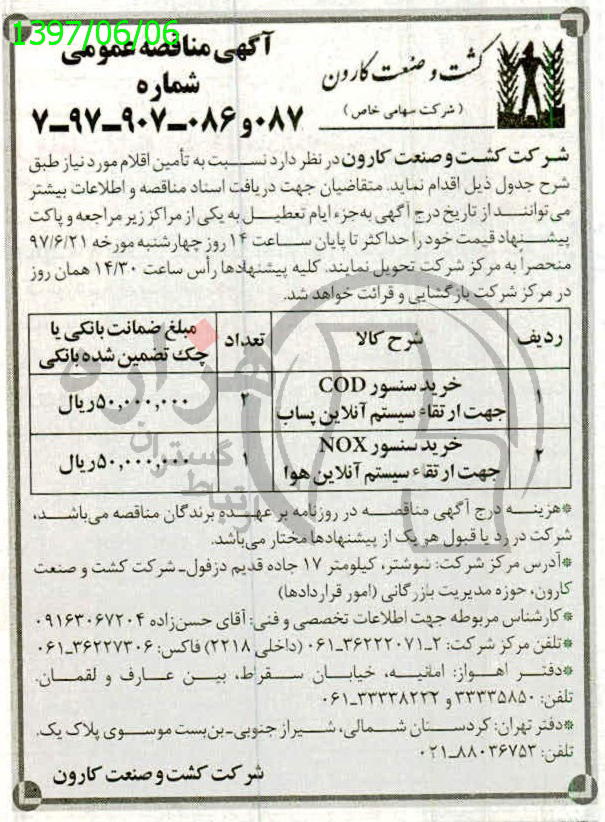 1397/06/06
کشت و صنعت کارون
( شرکت سهامی خاص )
آگهی مناقصه عمومی
شماره
۰۸۷و۰۸۶-۹۰۷-۹۷-۷
شرکت کشت و صنعت کارون در نظر دارد نسبت به تأمین اقلام مورد نیاز طبق
شرح جدول ذیل اقدام نماید. متقاضیان جهت دریافت اسناد مناقصه و اطلاعات بیشتر
می‌توانند از تاریخ درج آگهی به‌جزء ایام تعطیل به یکی از مراکز زیر مراجعه و پاکت
پیشنهاد قیمت خود را حداکثر تا پایان ساعت ۱۴ روز چهارشنبه مورخه ۹۷/۶/۲۱
منحصراً به مرکز شرکت تحویل نمایند. کلیه پیشنهادها رأس ساعت ۱۴/۳۰ همان روز
در مرکز شرکت بازگشایی و قرائت خواهد شد.
ردیف شرح کالا تعداد مبلغ ضمانت بانکی یا
چک تضمین شده بانکی
۱ خرید سنسور COD
جهت ارتقاء سیستم آنلاین پساب ۲ ۵۰,۰۰۰,۰۰۰ریال
۲ خرید سنسور NOX
جهت ارتقاء سیستم آنلاین هوا ۱ ۵۰,۰۰۰,۰۰۰ریال
هزاره
گستران
ارتباط
*هزینه درج آگهی مناقصه در روزنامه بر عهده برندگان مناقصه می‌باشد،
شرکت در رد یا قبول هر یک از پیشنهادها مختار می‌باشد.
*آدرس مرکز شرکت: شوشتر، کیلومتر ۱۷ جاده قدیم دزفول- شرکت کشت و صنعت
کارون، حوزه مدیریت بازرگانی (امور قراردادها)
*کارشناس مربوطه جهت اطلاعات تخصصی و فنی: آقای حسن‌زاده ۰۹۱۶۳۰۶۷۲۰۴
*تلفن مرکز شرکت: ۲-۳۶۲۲۲۰۷۱-۰۶۱ (داخلی ۲۲۱۸) فاکس: ۳۶۲۲۷۳۰۶-۰۶۱
*دفتر اهواز: امانیه، خیابان سقراط، بین عارف و لقمان.
تلفن: ۳۳۳۳۵۸۵۰ و ۳۳۳۳۸۲۲۲-۰۶۱
*دفتر تهران: کردستان شمالی، شیراز جنوبی-بن‌بست موسوی پلاک یک.
تلفن: ۸۸۰۳۶۷۵۳-۰۲۱
شرکت کشت و صنعت کارون